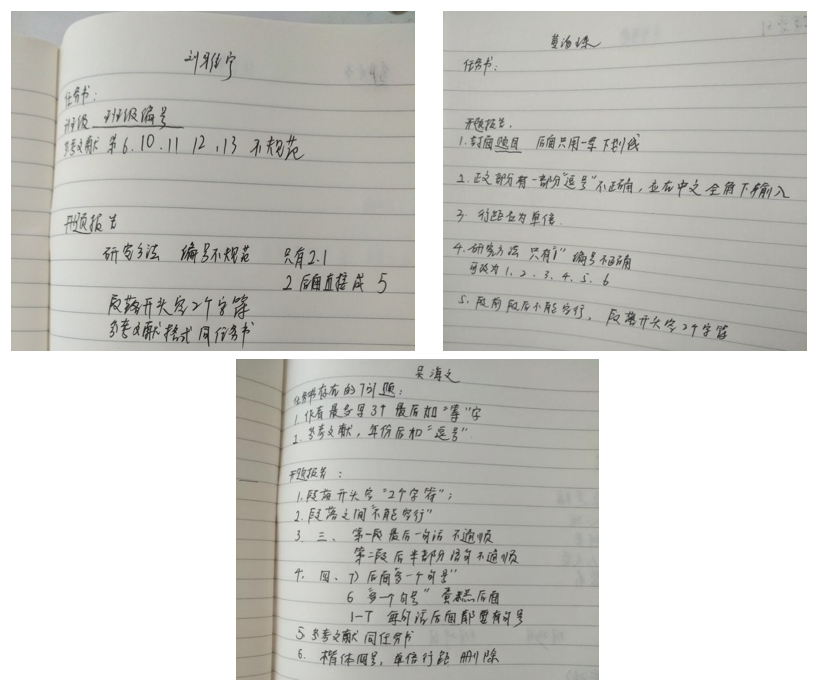 刘雅宁
任务书：
班级 班级编号
参考文献 第6.10.11 12.13 不规范
开题报告
研究方法 编号不规范 只有2.1
2后面直接成5
段落开头空2个字符
参考文献格式同任务书
任务书：
开题报告.
1.封面题目 后面只用一条下划线
2.正文部分有一部分"逗号"不正确，应在中文全角下输入
3.行距应为单倍.
4.研究方法 只有"1" 编号不正确
可改为1、2、3、4、5、6
5.段前段后不能空行，段落开头空2个字符
吴海文
任务书存在的问题：
1.作者最多写3个 最后加"等"字
2.参考文献，年份后加"逗号"
开题报告：
1.段落开头空"2个字符"；
2.段落之间"不能空行"
3.三、第一段最后一句话不通顺
第二段后半部分语句不通顺
4.四、7）后面"多一个句号"
6"多一个句号" 蛋糕后面
1-7 每句话后面都要有句号
5.参考文献同任务书
6.楷体四号，单倍行距 删除